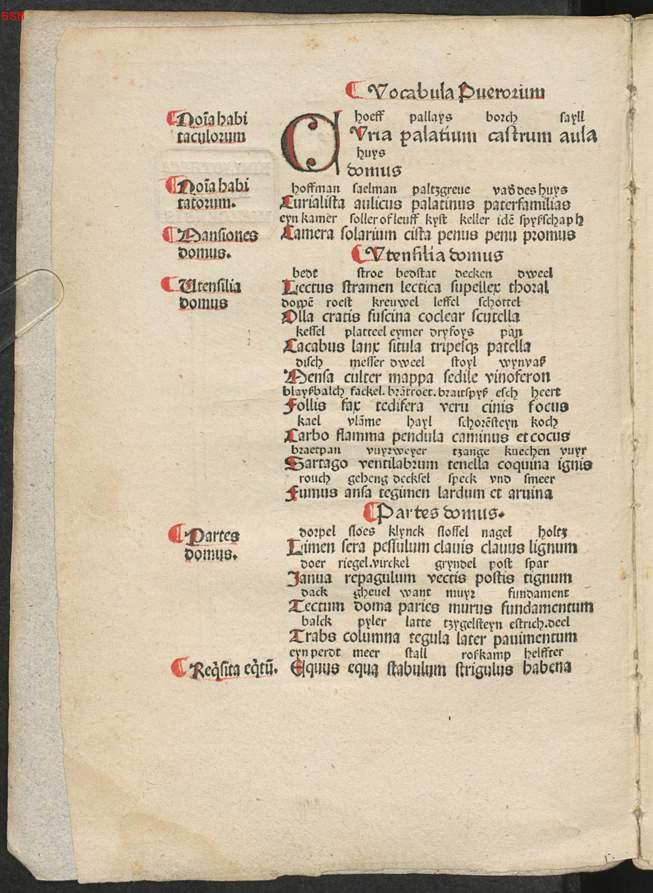 BSB
Vocabula Puerorium
Noīa habi
taculorum
hoeff pallays borch sayll
CVria palatium castrum aula
huys
domus
Noīa habi
tatorum.
hoffman saelman paltzgreue vad̄ des huys
Curialista aulicus palatinus paterfamilias
eyn kamer soller of leuff kyst keller idē spyßschaph
Mansiones
domus.
Camera solarium cista penus penu promus
Vtensilia domus
bedt stroe bedstat decken dweel
Vtensilia
domus
Lectus stramen lectica supellex thoral
doppē roest kreuwel leffel schottel
Olla cratis fuscina coclear scutella
kessel platteel eymer dryfoys pan
Cacabus lanx situla tripesqꝫ patella
disch messer dweel stoyl wynvaß
Mensa culter mappa sedile vinoferon
blayßbalch fackel. brātroet. braitspyß esch heert
Follis fax tedifera veru cinis focus
kael vlāme hayl schorēsteyn koch
Carbo flamma pendula caminus et cocus
braetpan vuyrweyer tzange kuechen vuyr
Sartago ventilabrum tenella coquina ignis
rouch geheng decksel speck vnd smeer
Fumus ansa tegimen lardum et aruina
Partes domus.
dorpel sloes klynck slossel nagel holtz
Partes
domus.
Limen sera pessulum clauis clauus lignum
doer riegel. virckel gryndel post spar
Ianua repagulum vectis postis tignum
dack gheuel want muyr fundament
Tectum doma paries murus fundamentum
balck pyler latte tzygelsteyn estrich. deel
Trabs columna tegula later pauimentum
eyn perdt meer stall roskamp helffter
Req̄sita eq̄tū. Equus equa stabulum strigulus habena